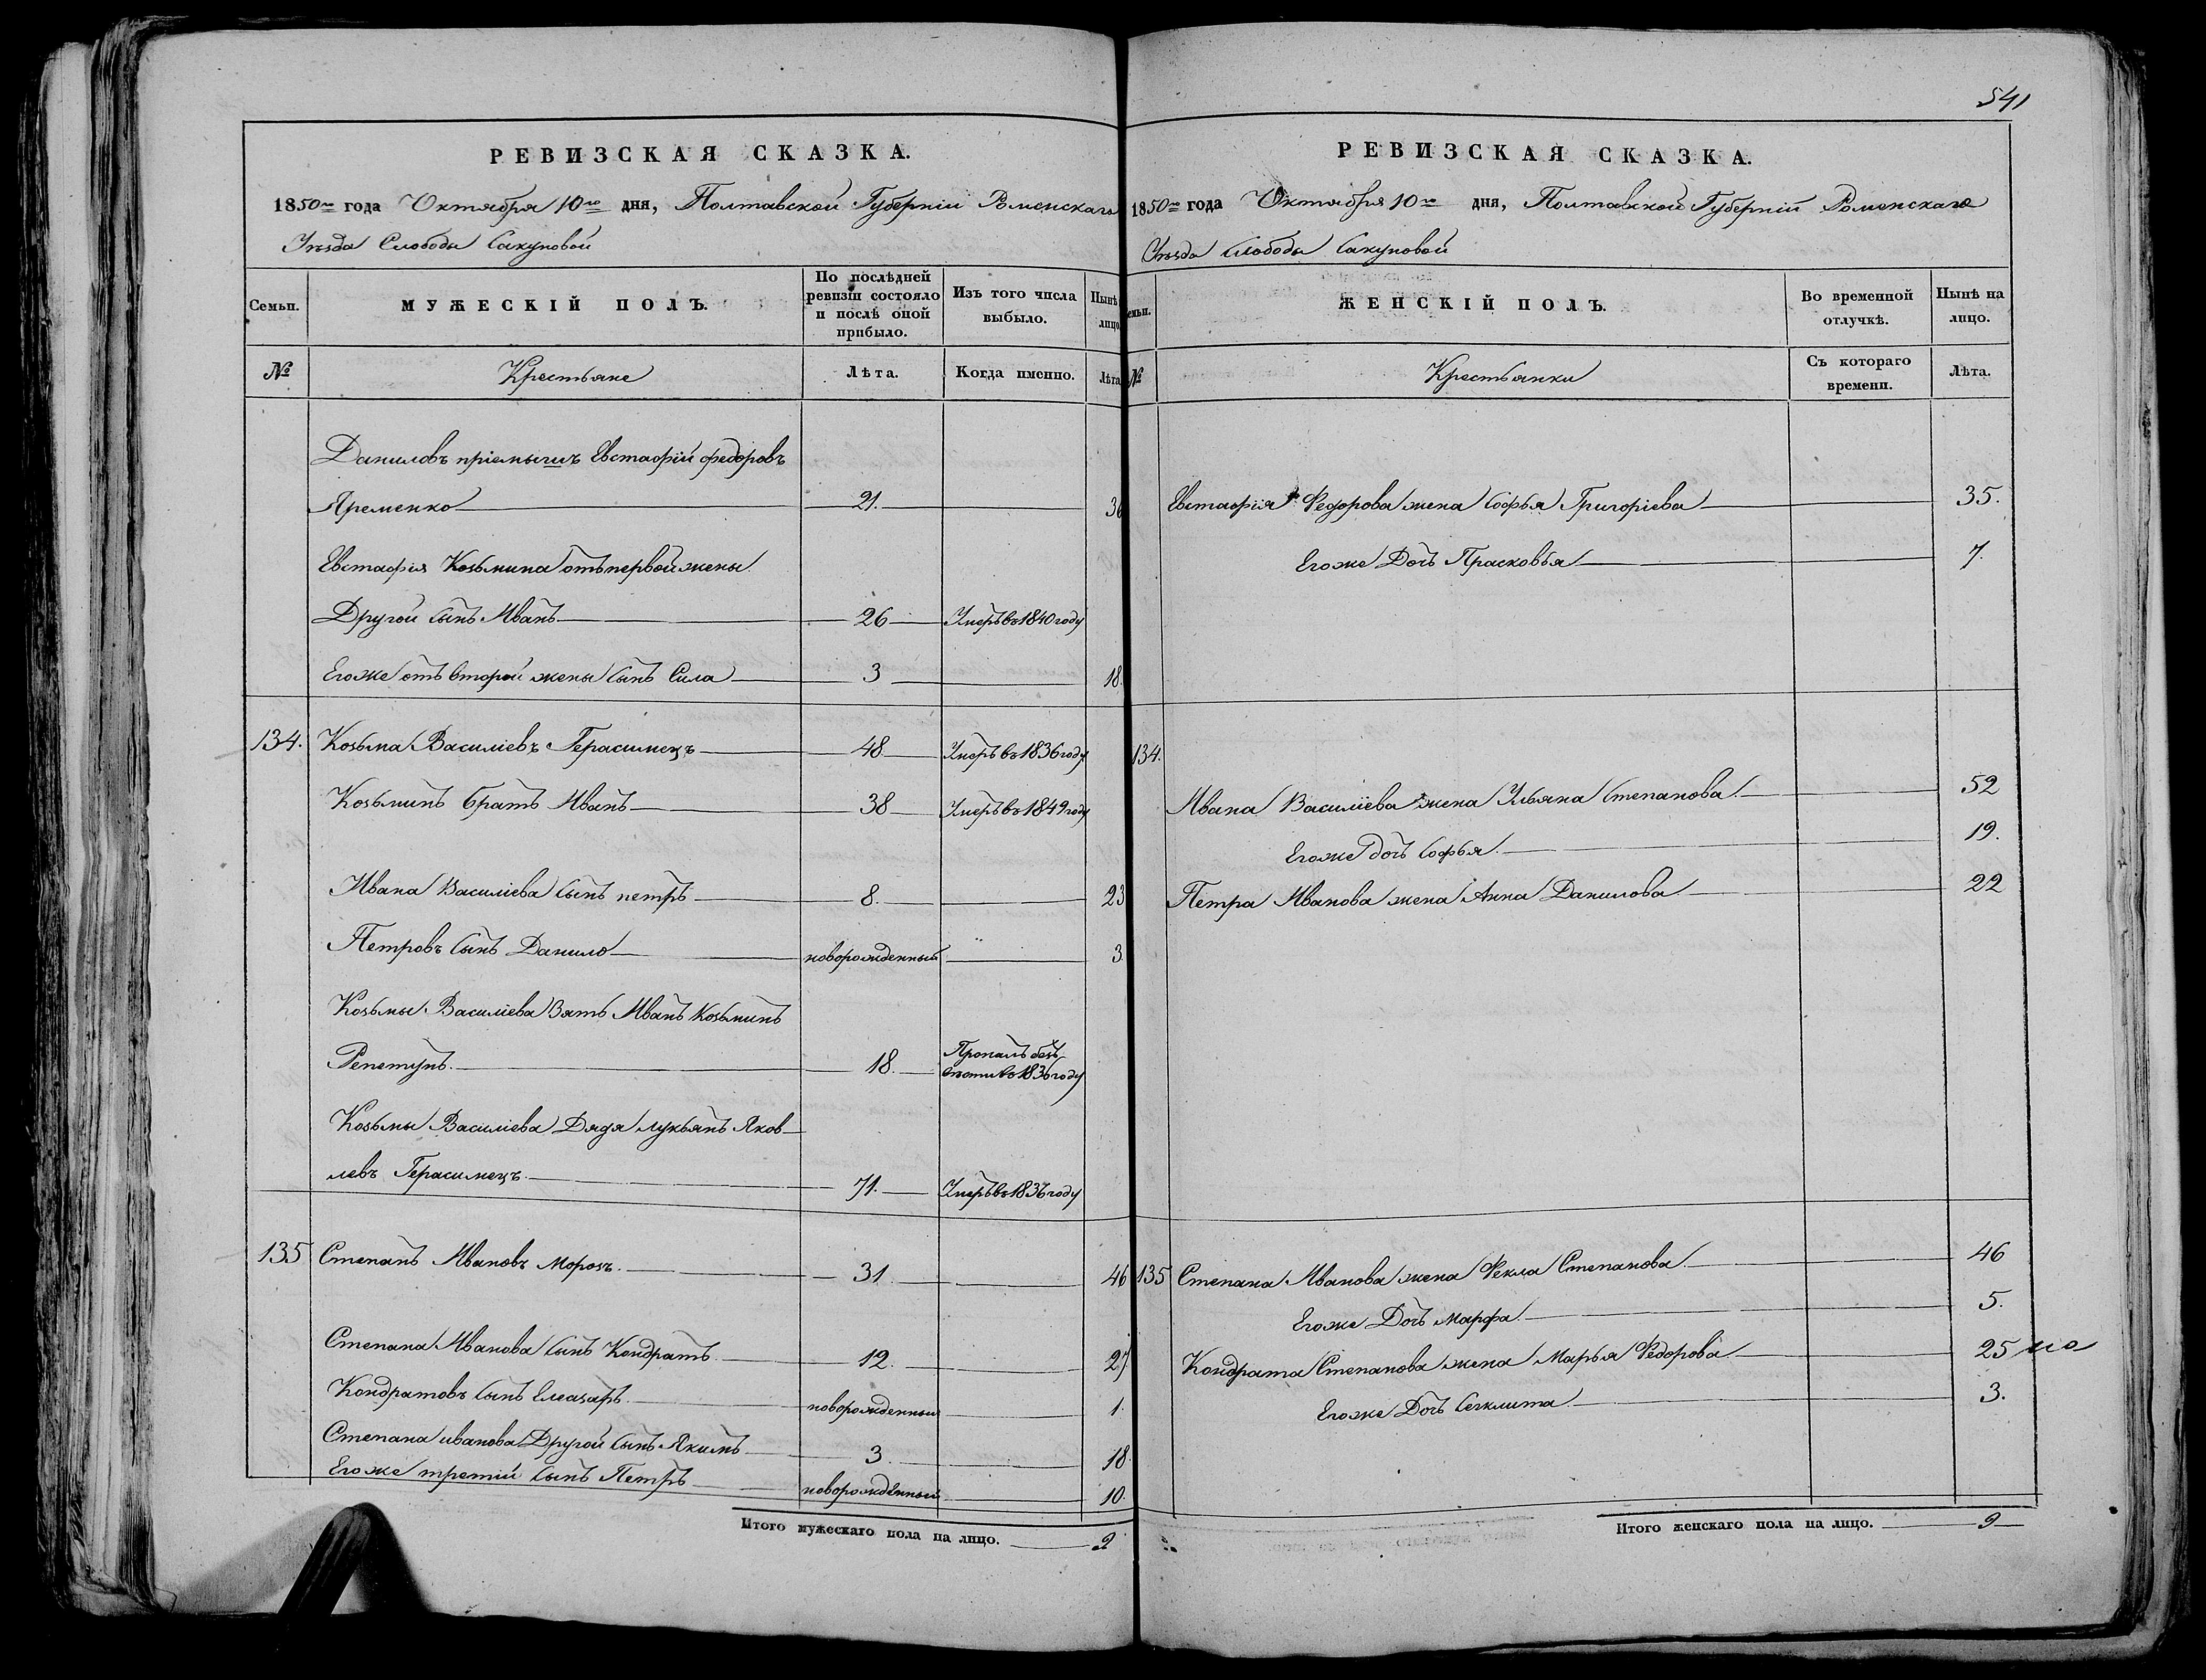 РЕВИЗСКАЯ СКАЗКА.
1850го года Октября 10го дня, Полтавской Губерніи Роменскаго
Уѣзда Слободы Сакуновой
Семьи.
МУЖЕСКІЙ ПОЛЪ.
По послѣдней ревизіи состояло и послѣ оной прибыло.
Изъ того числа выбыло.
Нынѣ лицо
№
Крестьяне
Лѣта.
Когда именно.
Лѣта
Даниловъ пріемышъ Евстафій федоровъ
Яременко 21. 36
Евстафія Козьмина отъ первой жены
Другой сынъ Иванъ 26 Умеръ въ 1840 году
Егоже отъ второй жены сынъ Сила 3 18.
134. Козьма Василіевъ Герасимецъ 48 Умеръ въ 1836 году
Козьминъ братъ Иванъ 38 Умеръ въ 1849 году
Ивана Василіева сынъ петръ 8. 23
Петровъ сынъ Данило новорожденный 3.
Козьмы Василіева Зять Иванъ Козьминъ
Репетунъ. 18. Пропалъ безъ
вѣсти въ 1836 году
Козьмы Василіева Дядя лукьянъ Яков
левъ Герасимецъ. 71. Умеръ въ 1836 году
135 Степанъ Ивановъ Морозъ. 31. 46
Степана Иванова сынъ Кондратъ 12. 27
Кондратовъ сынъ Елеазаръ новорожденный 1.
Степана иванова Другой сынъ Якимъ 3. 18
Егоже третій сынъ Петръ новорожденный 10.
Итого мужескаго пола на лицо. 9
541
РЕВИЗСКАЯ СКАЗКА.
1850го года Октября 10го дня, Полтавской Губерній Роменскаго
Уѣзда Слободы Сакуновой
емьи.
ЖЕНСКІЙ ПОЛЪ.
Во временной отлучкѣ.
Нынѣ на лицо.
№
Крестьянки
Съ котораго времени.
Лѣта.
Евстафія Федорова жена Софья Григоріева 35.
Егоже Дочь Прасковья 7.
134.
Ивана Василіева жена Ульяна Степанова 52
Егоже дочь Софья. 19.
Петра Иванова жена Анна Данилова 22
135 Степана Иванова жена Фекла Степанова 46
Егоже Дочь марфа. 5.
Кондрата Степанова жена Марья Федорова 25
Егоже Дочь Секлита 3.
Итого женскаго пола на лицо. 9